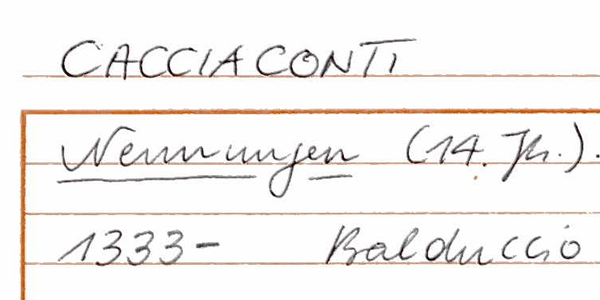 CACCIACONTI
Nennungen (14. Jh.).
1333- Balduccio